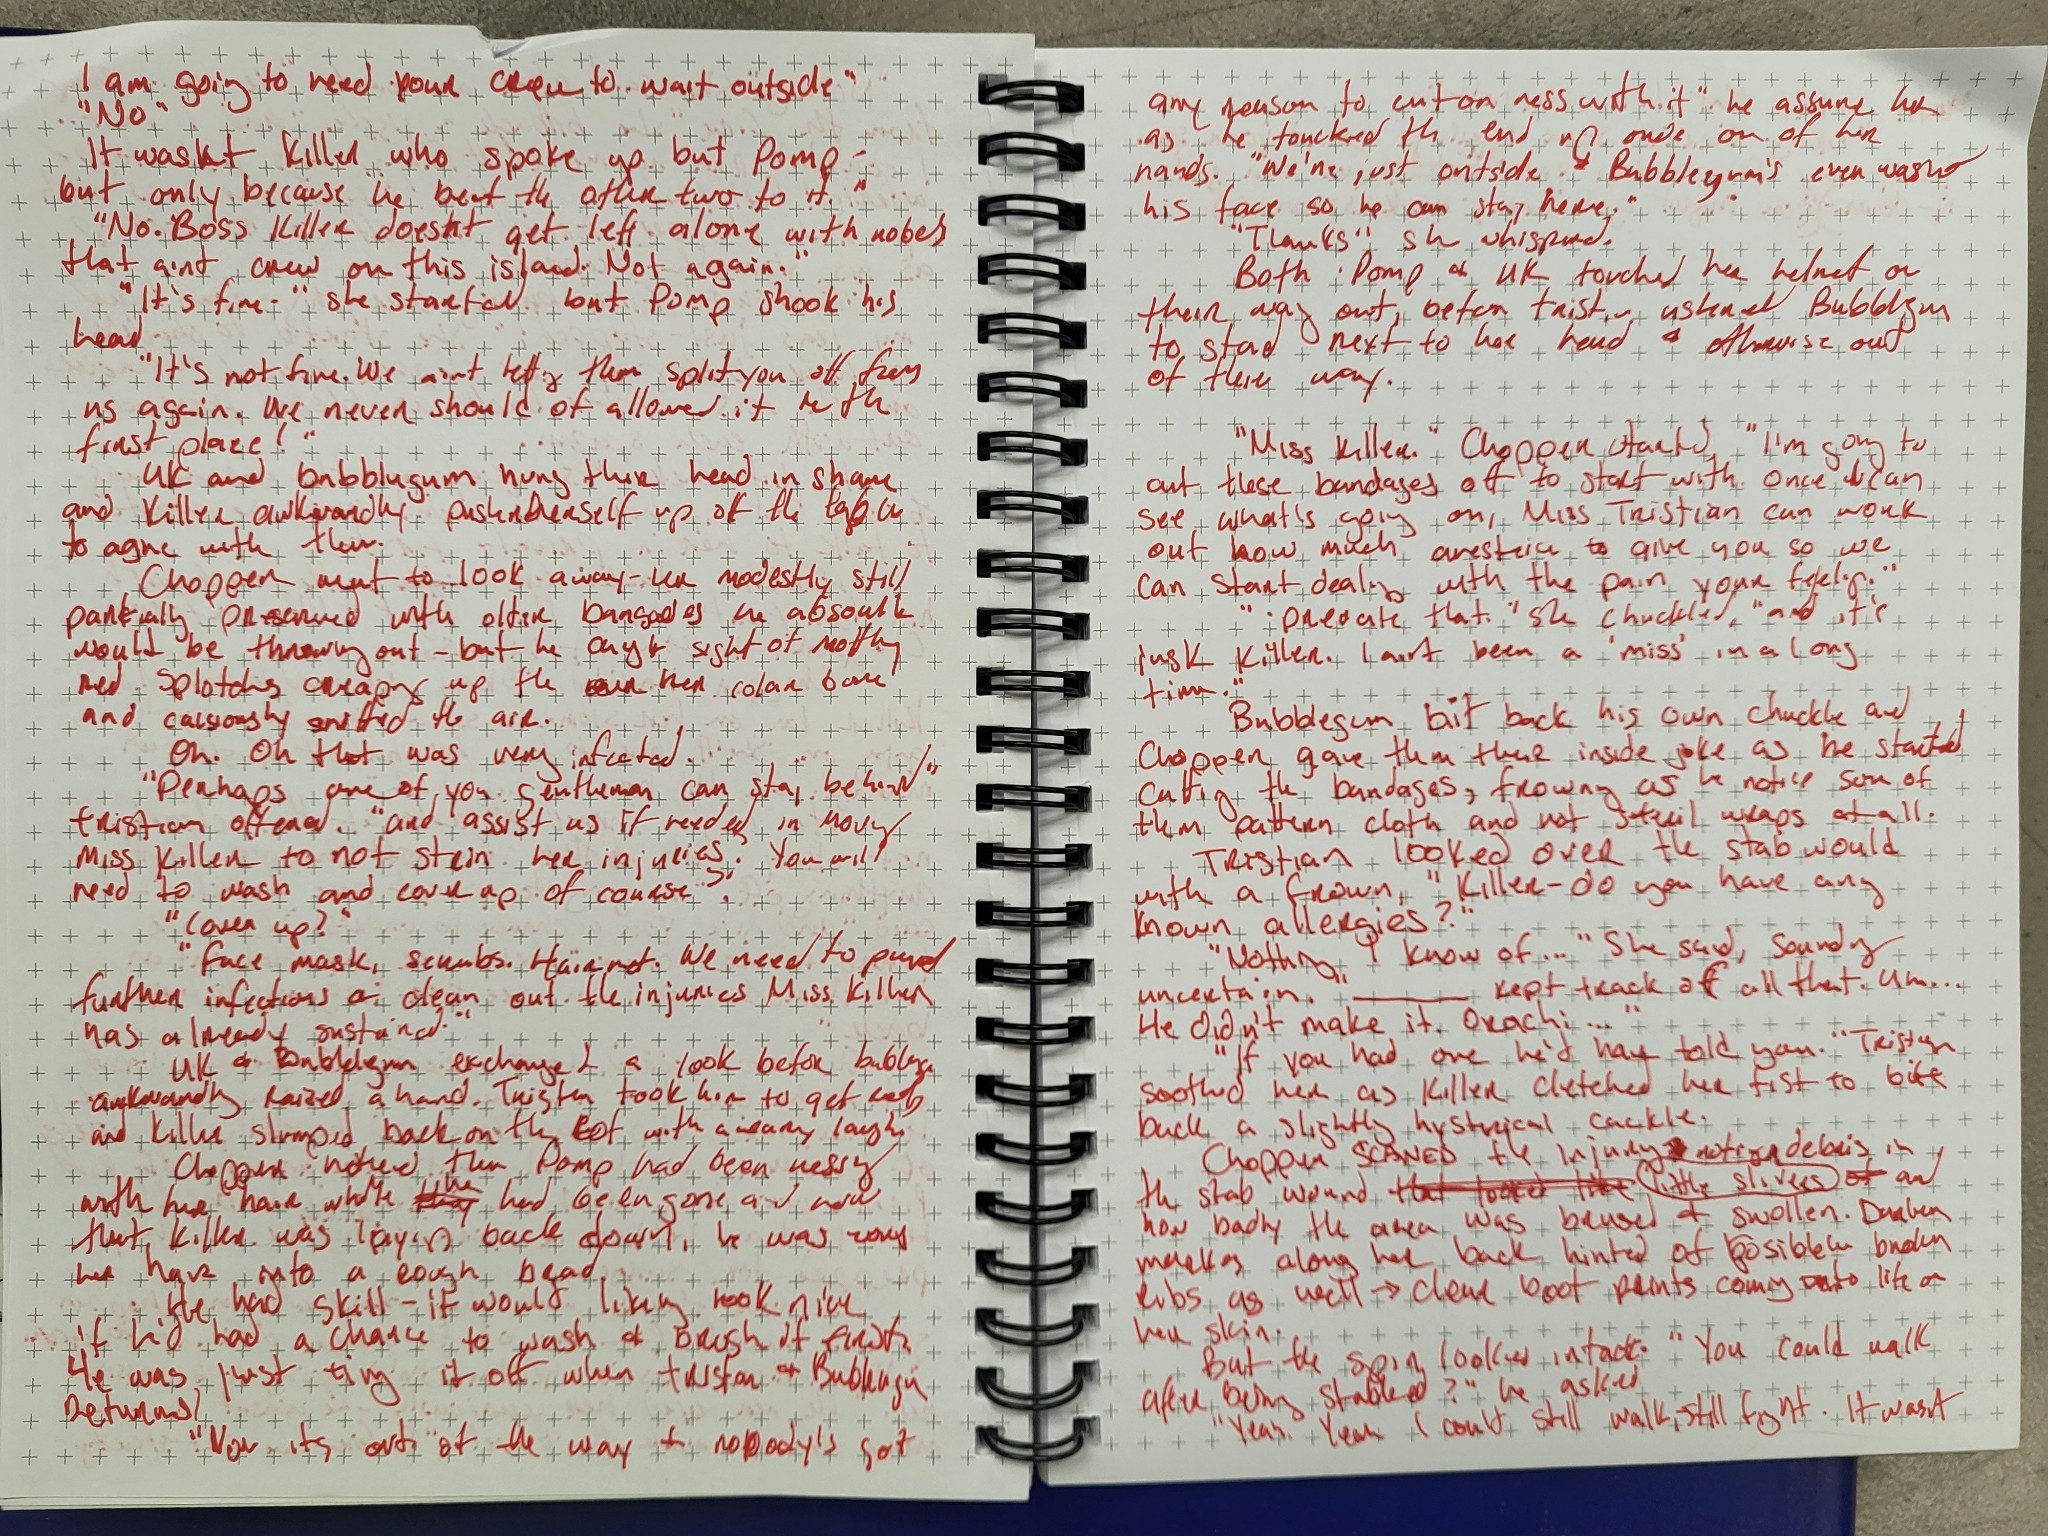 I am going to need your crew to wait outside"
"No"
It wasn't Killer who spoke up but Pomp -
but only because he beat the other two to it."
"No. Boss Killer doesn't get left alone with nobody
that aint crew on this island. Not again."
"It's fine-" she started but Pomp shook his
head
"It's not fine. We aint letting them split you off from
us again. We never should of allowed it in the
first place!"
UK and bubblegum hung their head in shame
and Killer awkwardly pushed herself up off the table
to agree with them.
Chopper went to look away - her modestly still
partially preserved with other bandages he absoulte
would be throwing out - but he caught sight of
red splotches creaping up the her colar bone
and causiously sniffed the air.
Oh. Oh that was very infected.
"Perhaps one of you gentleman can stay behind"
Tristian offered. "and assist us if needed in moving
Miss Killer to not strain her injuries? You will
need to wash and cover up of course?"
"Cover up?"
"Face mask, scrubs. Hairnet. We need to
further infections & clean out the injuries Miss Killer
has already sustained."
UK & Bubblegum exchanged a look before bubblegum
awkwardly raized a hand. Tristen took him to get ready
and Killer slumped back on the cot with a weary laugh.
Chopper noticed then Pomp had been messing
with her hair while they had been gone and now
that Killer was laying back down, he was
her hair into a rough brad.
He had skill - it would likely look nice
if he'd had a chance to wash & brush it first.
He was just tieing it off when tristan & Bubblegum
Returned.
"Now its out of the way & nobody's got
any reason to cut on mess with it" he assure her
as he touched the end up once on of her
hands. "We're just outside & Bubblegum's even washed
his face so he can stay here."
"Thanks" she whispered.
Both Pomp & UK touched her helmet on
their way out, before tristin ushered Bubblegum
to stand next to her head & otherwise out
of their way.
"Miss Killer." Chopper started, "I'm going to
cut these bandages off to start with. Once we can
see what's going on, Miss Tristian can work
out how much anestesia to give you so we
can start dealing with the pain your feeling."
"preciate that." she chuckled, "and it's
just Killer. I aint been a 'miss' in a long
time."
Bubblegum bit back his own chuckle and
Chopper gave them there inside joke as he started
cutting the bandages, frowning as he notice som of
them pattern cloth and not steril wraps at all.
Tristian looked over the stab would
with a frown, "Killer - do you have any
known allergies?"
"Nothing I know of..." She said, sounding
uncertain. "______ kept track of all that. Um...
He didn't make it. Orachi..."
"If you had one he'd have told you." Tristian
soothed her as Killer cletched her fist to bite
back a slightly hysterical cackle.
Chopper SCANED the injury noting debris in
the stab wound that looked like little slivers of and
how badly the area was brused & swollen. Darker
markes along her back hinted of posible broken
ribs as well → clear boot prints coming into life on
her skin.
But the spin looked intact. "You could walk
after being stabbed?" he asked
"Yeah. Yeah I could still walk, still fight. It wasnt